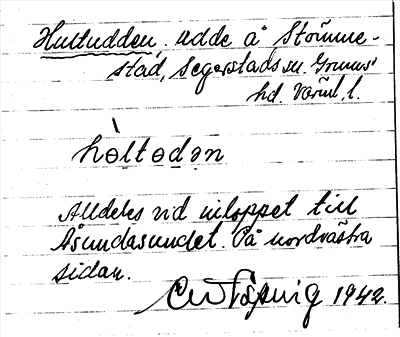 Hultudden, udde å Stömme-
stad, Segerstads sn. Grums'
hd. Värml. l.
hòltodən
Alldeles vid inloppet till
Åsundasundet. På nordvästra
sidan.
1942.